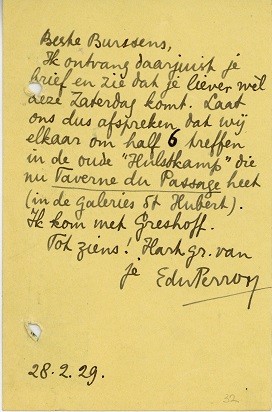 Beste Burssens,
Ik ontvang daarjuist je
brief en zie dat je liever wèl
deze Zaterdag komt. Laat
ons dus afspreken dat wij
elkaar om half 6 treffen
in de oude "Hulstkamp" die
nu Taverne du Passage heet
(in de galeries St Hubert).
Ik kom met Greshoff.
Tot ziens! Hart. gr. van
je EduPerron
28.2.29.
32